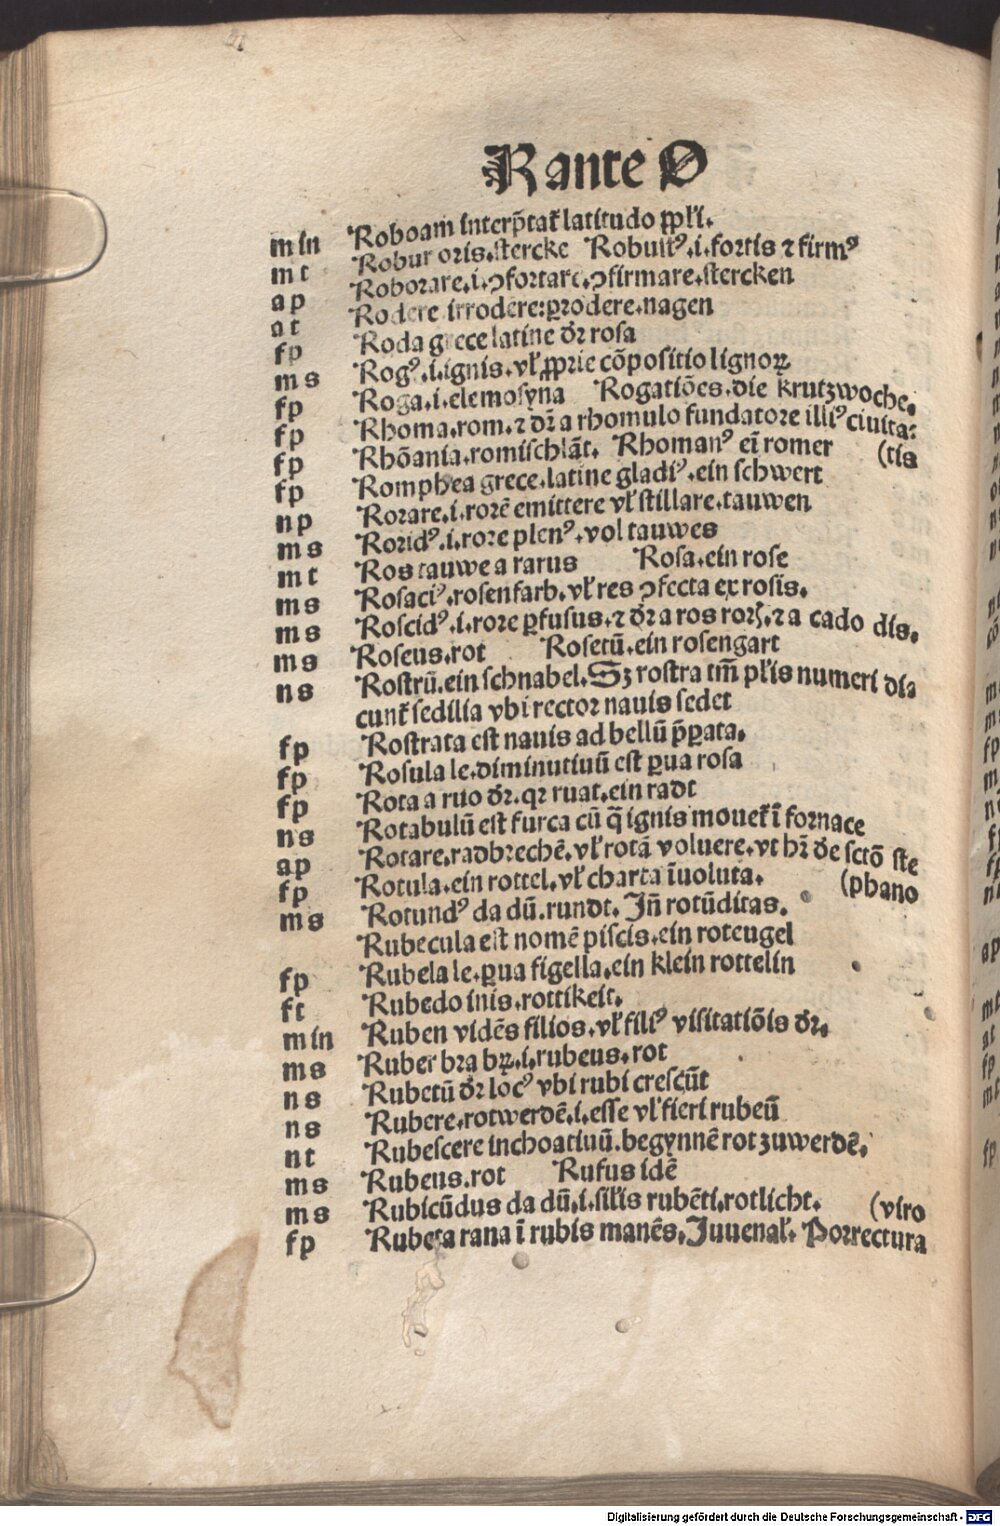 R ante O
min Roboam interp̃tat̃ latitudo ꝓp̃ł'i.
mt Robur oris.stercke Robustꝰ.i.fortis ⁊ firmꝰ
ap Roborare.i.ꝯfortare.ꝯfirmare.stercken
at Rodere irrodere:ꝑrodere.nagen
fp Roda grece latine dr̃ rosa
ms Rogꝰ.i.ignis.vł ꝓprie cõpositio lignoꝝ
fp Roga.i.elemosyna Rogatiões.die krutzwoche.
fp Rhoma.rom.⁊ dr̃ a rhomulo fundatore illiꝰ ciuita⸗
fp Rhõania.romischlãt. Rhomanꝰ eĩ romer (tis
fp Romphea grece.latine gladiꝰ.ein schwert
np Rorare.i.rorẽ emittere vł stillare.tauwen
ms Roridꝰ.i.rore plenꝰ.vol tauwes
mt Ros tauwe a rarus Rosa.ein rose
ms Rosaciꝰ.rosenfarb.vł res ꝯfecta ex rosis.
ms Roscidꝰ.i.rore ꝑfusus.⁊ dr̃ a ros roꝝ.⁊ a cado dis.
ms Roseus.rot Rosetũ.ein rosengart
ns Rostrũ.ein schnabel.Sꝫ rostra tm̃ płis numeri dia
cunt̃ sedilia vbi rector nauis sedet
fp Rostrata est nauis ad bellũ p̃ꝑata.
fp Rosula le.diminutiuũ est ꝑua rosa
fp Rota a ruo dr̃.qꝛ ruat.ein radt
ns Rotabulũ est furca cũ q̃ ignis mouet̃ ĩ fornace
ap Rotare.radbrechẽ.vł rotã voluere.vt hr̃ de sctõ ste
fp Rotula.ein rottel.vł charta ĩuoluta. (phano
ms Rotundꝰ da dũ.rundt. Iñ rotũditas.
Rubecula est nomẽ piscis.ein roteugel
fp Rubela le.ꝑua figella.ein klein rottelin
ft Rubedo inis.rottikeit.
min Ruben vidẽs filios.vł filiꝰ visitatiõis dr̃.
ms Ruber bra bꝝ.i.rubeus.rot
ns Rubetũ dr̃ locꝰ vbi rubi crescũt
ns Rubere.rotwerdẽ.i.esse vł fieri rubeũ
nt Rubescere inchoatiuũ.begynnẽ rot zuwerdẽ.
ms Rubeus.rot Rufus idẽ
ms Rubicũdus da dũ.i.siłis rubẽti.rotlicht. (viro
fp Rubeta rana ĩ rubis manẽs.Iuuenał. Porrectura
Digitalisierung gefördert durch die Deutsche Forschungsgemeinschaft - DFG